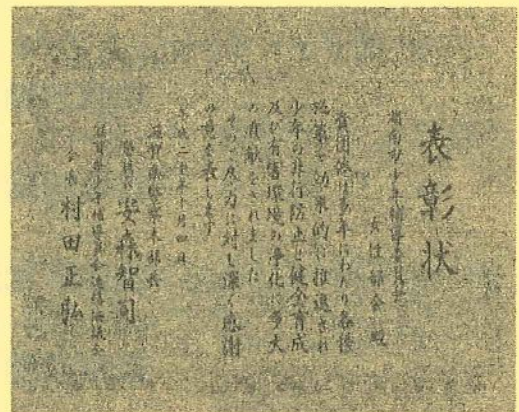 表彰状
湖南市少年補導委員会
女性部会殿
貴団体は多年にわたり各種
施策を効果的に推進され
少年の非行防止と健全育成
及び有害環境の浄化に多大
の貢献をされました
その功労に対し深く感謝
の意を表します
平成二十年十月四日
滋賀県警察本部長
警視長 安森智司
滋賀県少年補導委員会連絡協議会
会長 村田正弘